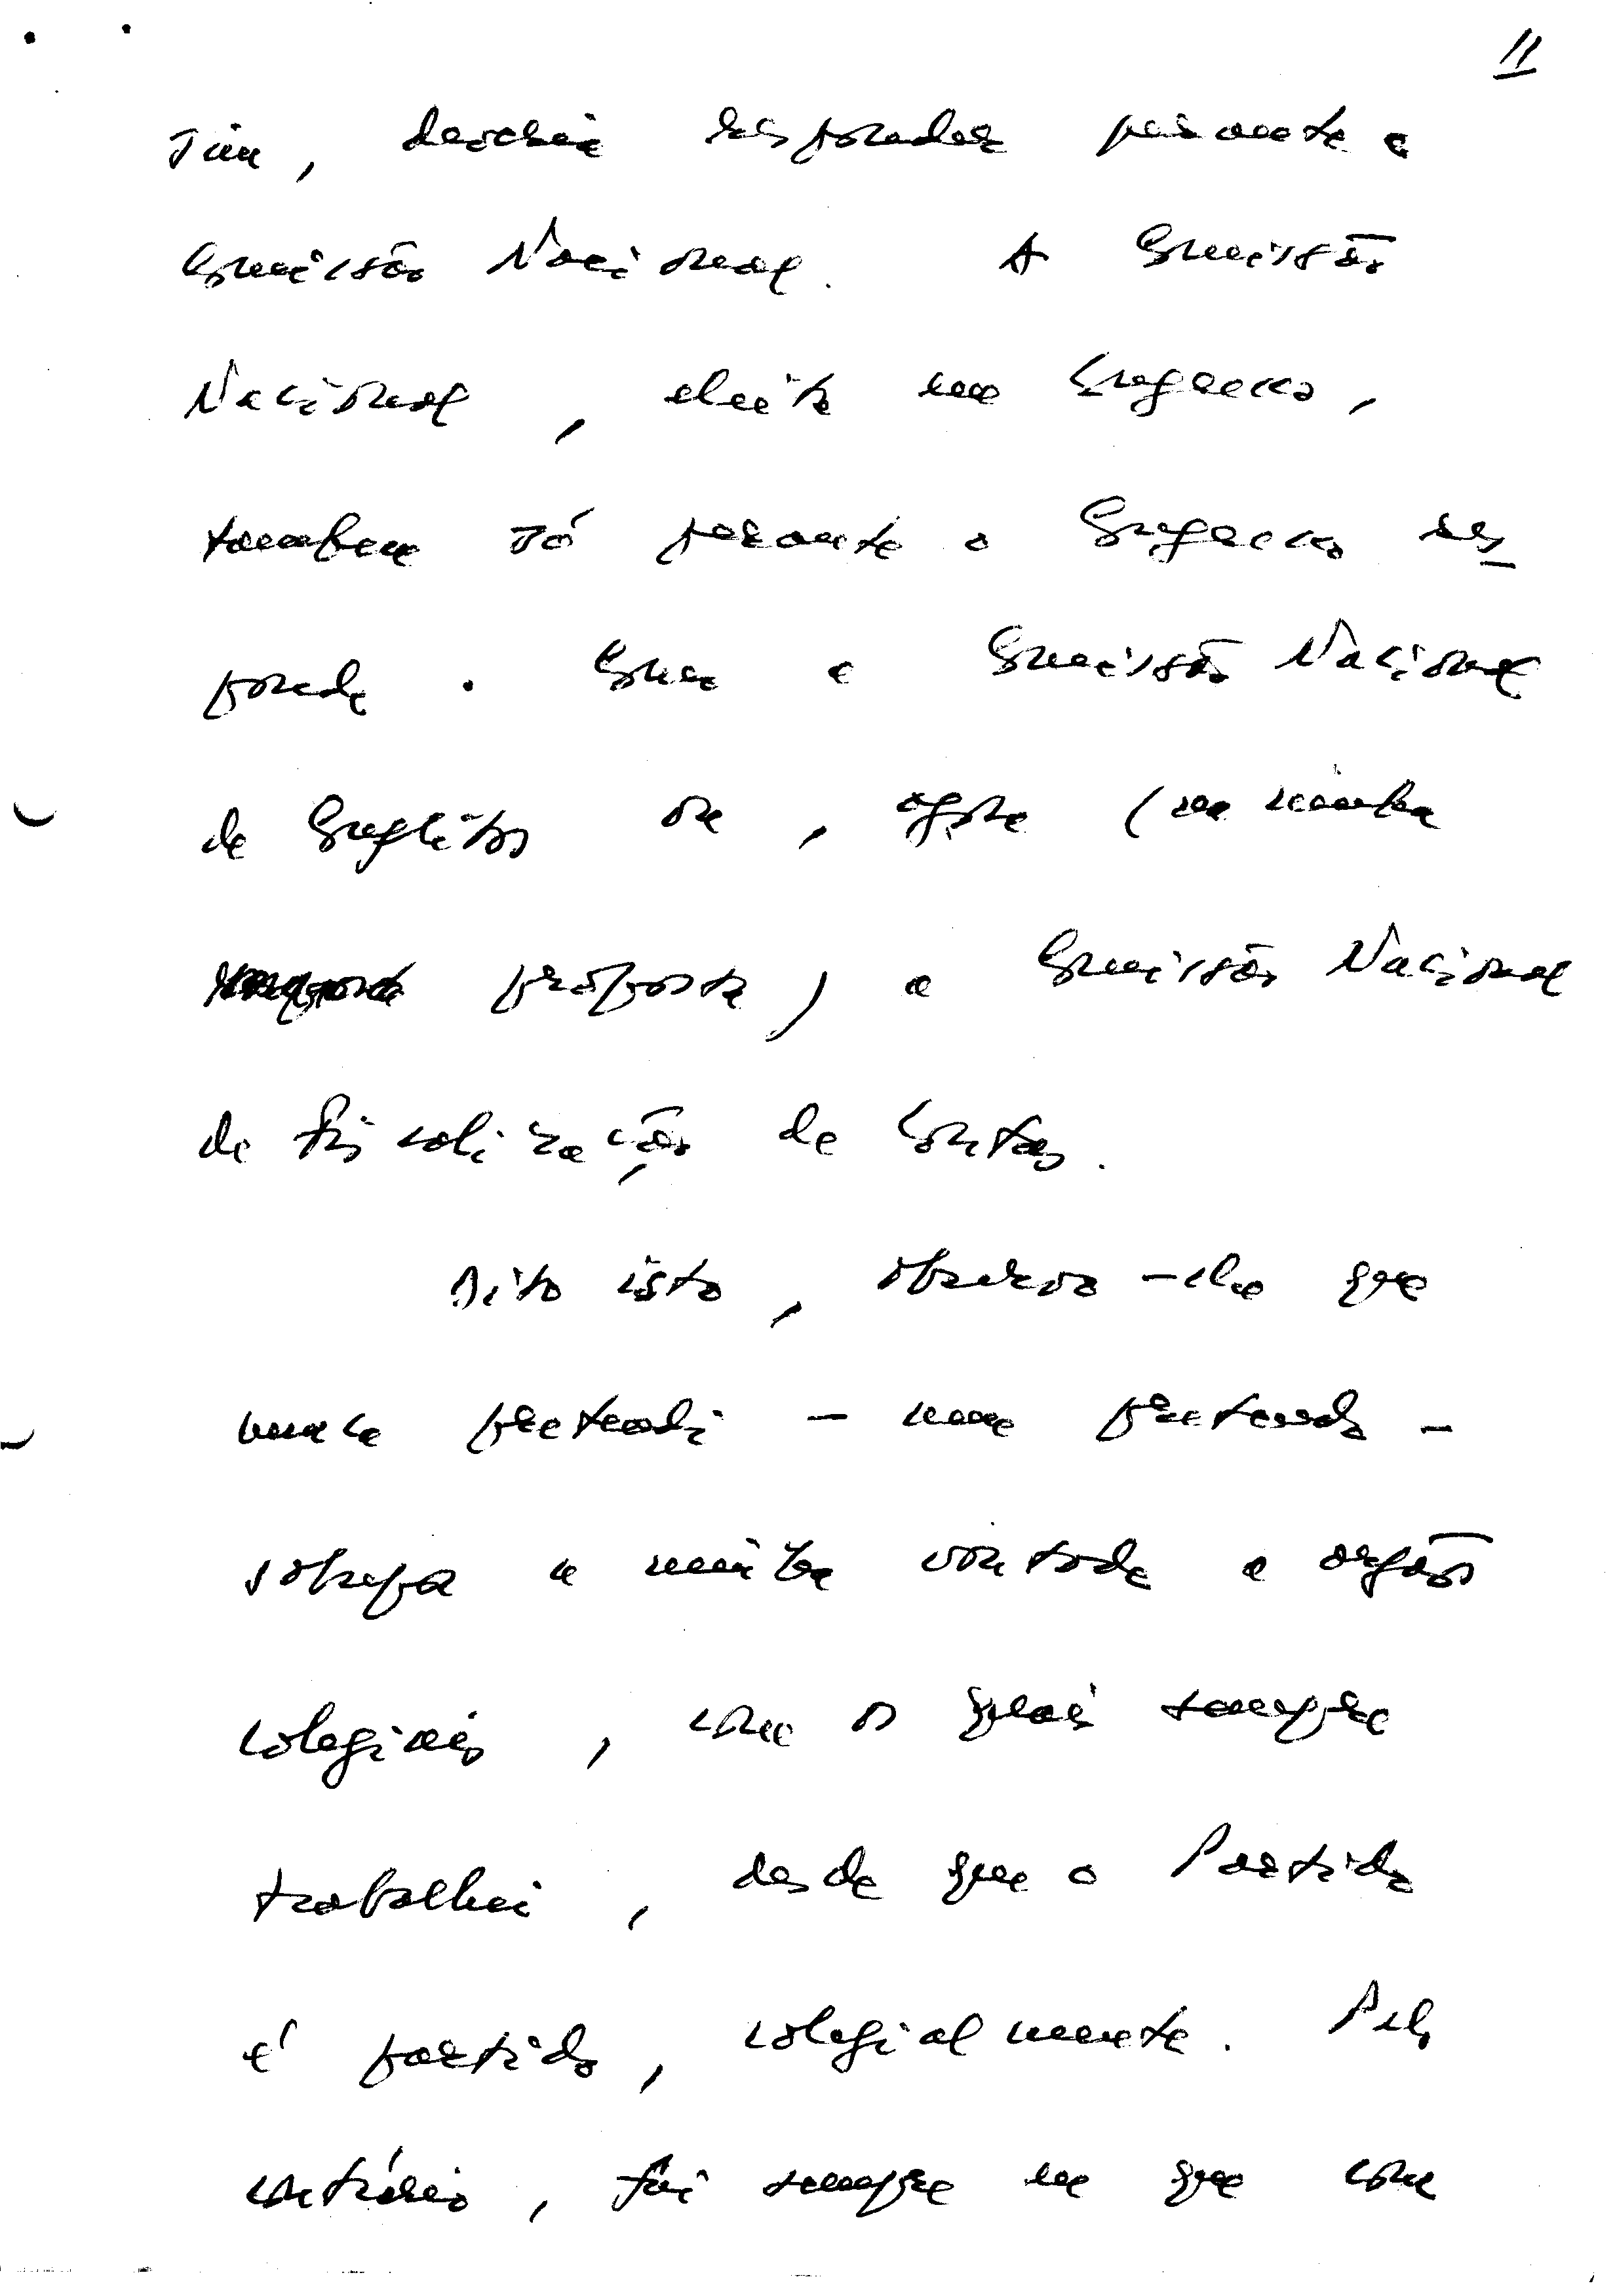 11
sim, deverá responder perante a
Comissão Nacional. A Comissão
Nacional, eleita em Congresso,
tambem só perante o Congresso res
ponde. Como a Comissão Nacional
de Conflitos ou, agora (na minha
proposta) a Comissão Nacional
de Fiscalização de Contas.
Dito isto, observo-lhe que
nunca pretendi - nem pretendo -
sobrepor a minha vontade a orgãos
colegiais, com os quais sempre
trabalhei, desde que o Partido
é partido, colegialmente. Pelo
contrário, fui sempre eu que com